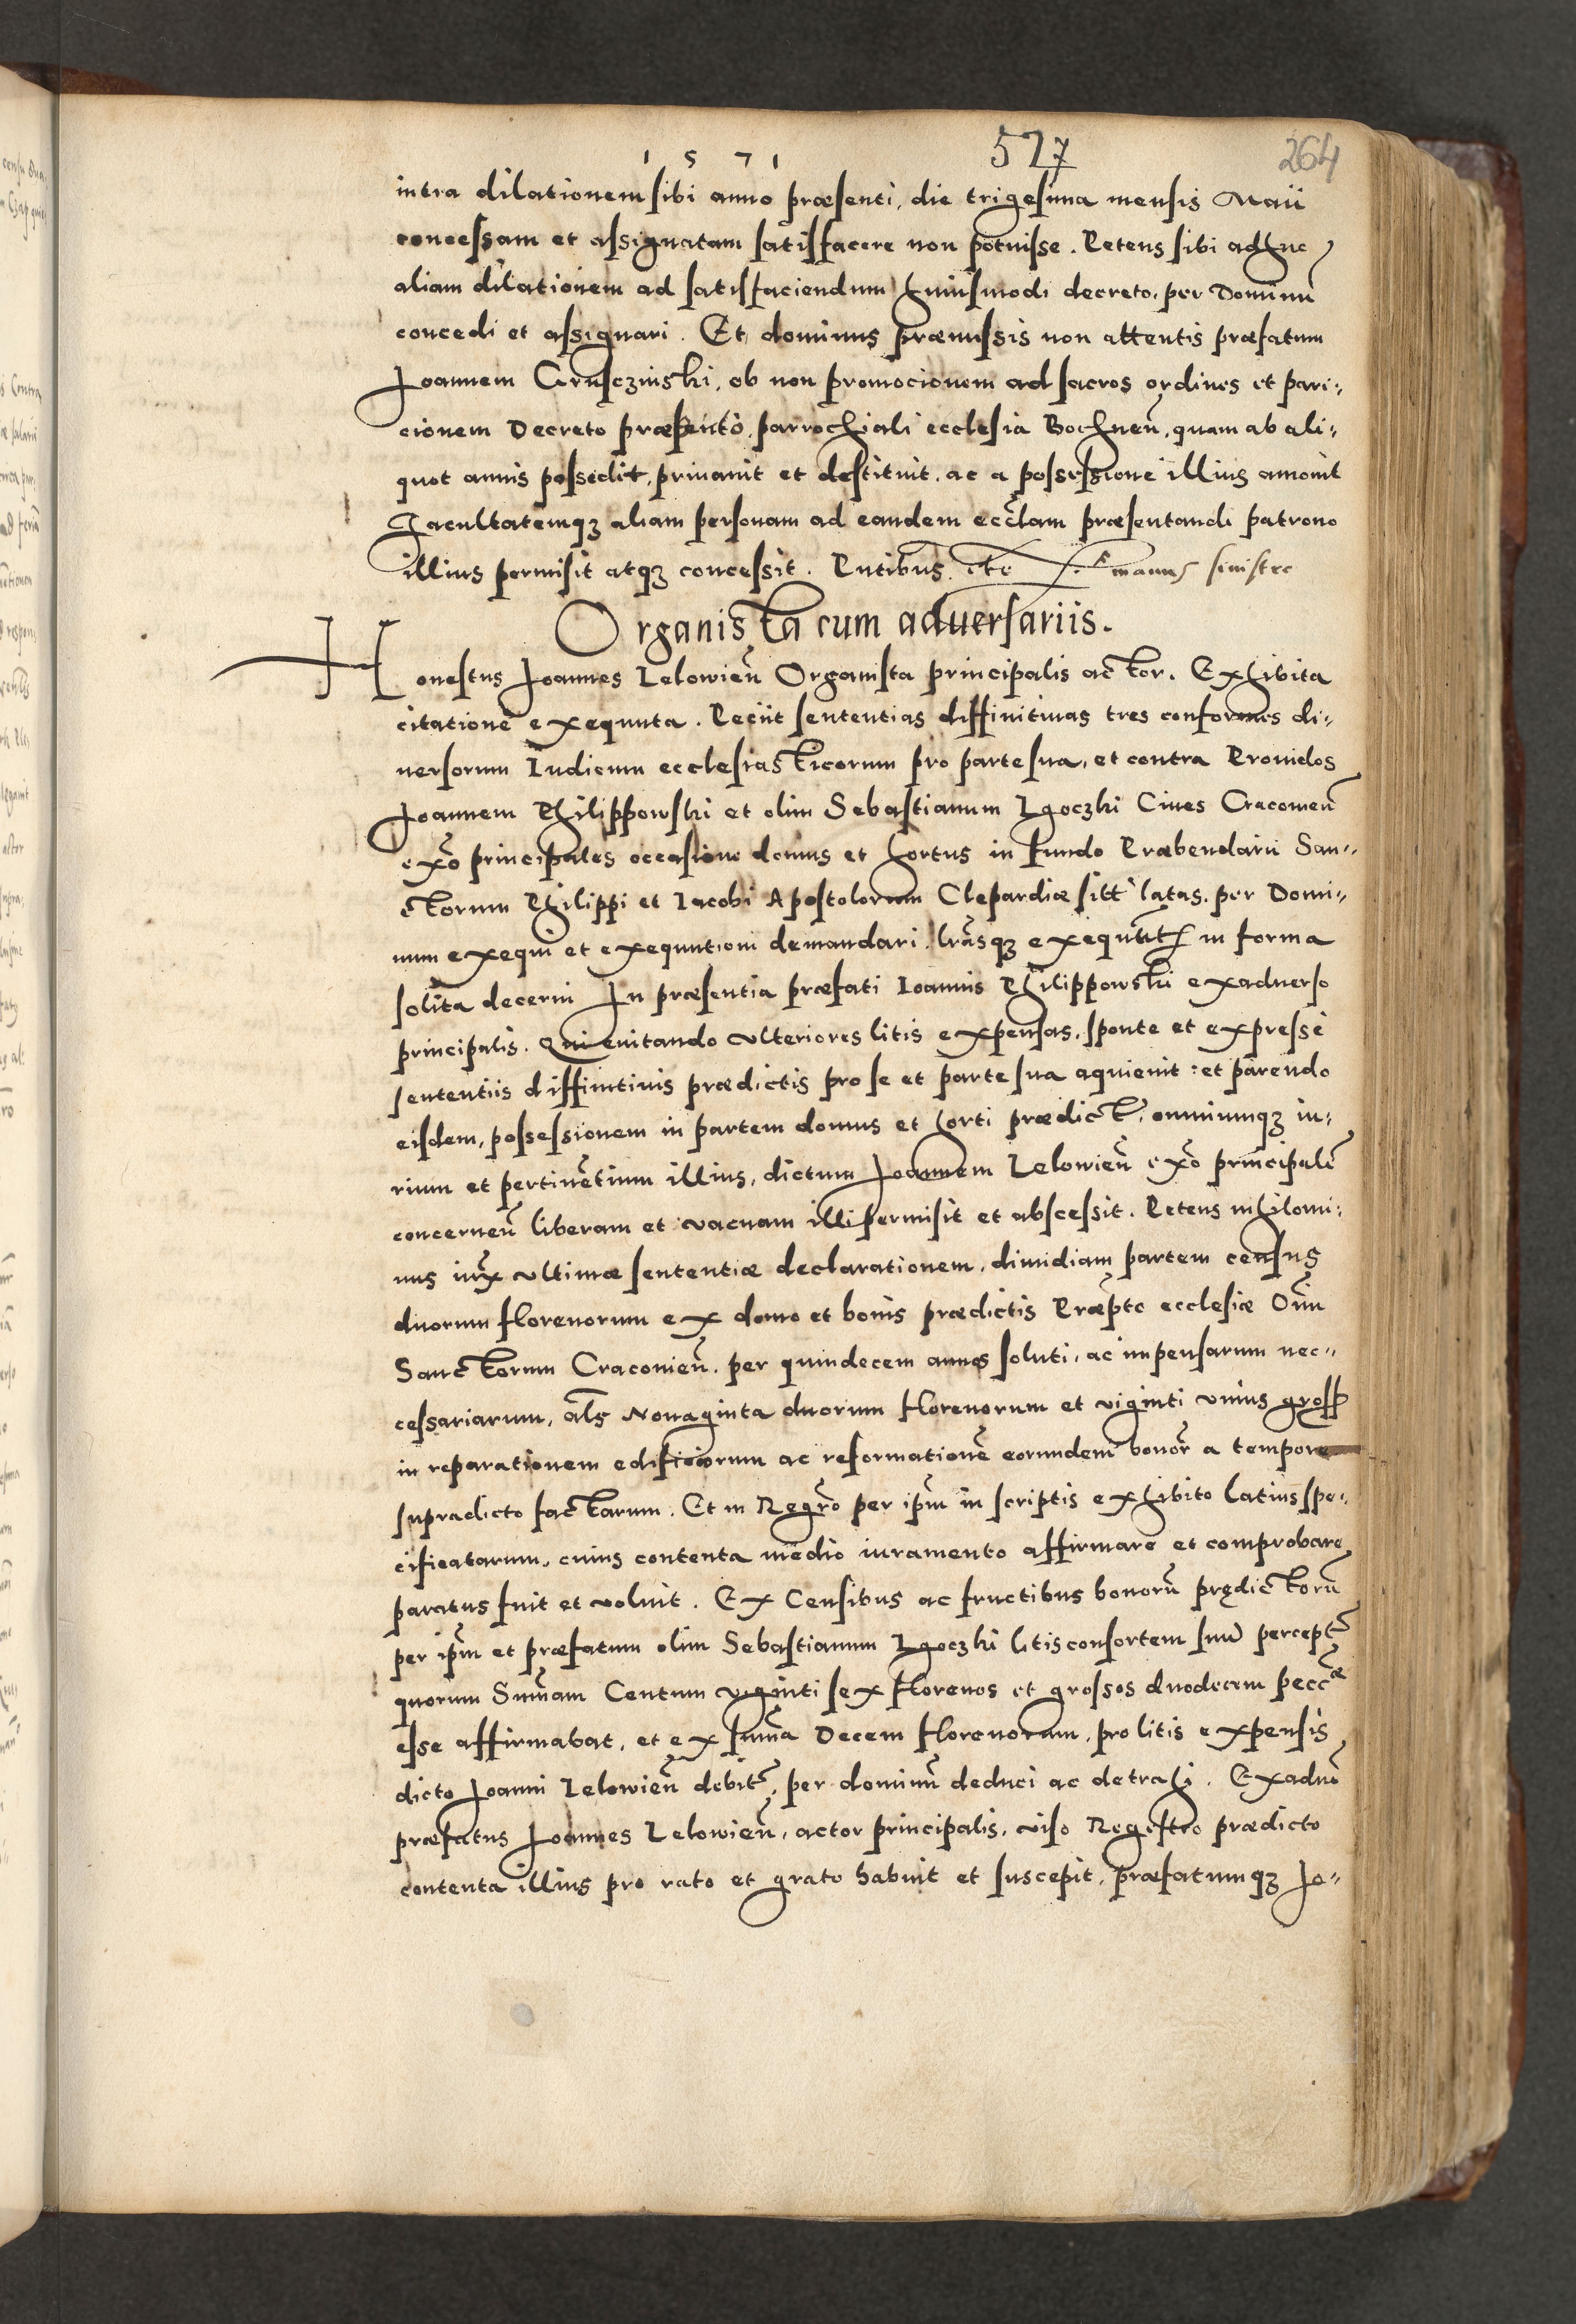 1571 577 264
intra dilationem sibi anno præsenti, die trigesima mensis Maii
concessam et assignatam satisfacere non potuisse. Petens sibi adhuc
aliam dilationem ad satisfaciendum huiusmodi decreto, per Dominũ
concedi et assignari. Et dominus præmissis non attentis præfatum
Joannem Gruscziński, ob non promocionem ad sacros ordines et pari:
cionem Decreto præsento, parrochiali ecclesia Bochneñ, quam ab ali:
quot annis possedit, priuauit et destituit, ac a possessione illius amouit
Facultatemqꝫ aliam personam ad eandem ecclam præsentandi patrono
illius permisit atqꝫ concessit. Pntibus etc manus sinistre
Organista cum aduersariis.
Honestus Joannes Lelowieñ Organista principalis actor. Exhibita
citatione exequuta. Petiit sententias diffinitiuas tres conformes di:
uersorum Iudicum ecclesiasticorum pro parte sua, et contra Prouidos
Joannem Philippowski et olim Sebastianum Lgoczki Ciues Cracouieñ
exão principales occasione domus et hortus in fundo Præbendarii San:
ctorum Philippi et Iacobi Apostolorum Clepardiæ sitt latas, per Domi:
num exequi et exequutioni demandari, lrasqꝫ in forma
solita decerni In præsentia præfati Ioannis Philippowski exaduerso
principalis. Qui euitando vlteriores litis expensas, sponte et expresse
sententiis diffinitiuis prædictis pro se et parte sua aquieuit: et parendo
eisdem, possessionem in partem domus et horti prædict, omniumqꝫ iu:
rium et pertinẽtium illius, dictum Joannem Lelowieñ exão principalẽ
concerneñ liberam et vacuam illi permisit et abscessit. Petens nihilomi:
nus iux vltimæ sententiæ declarationem, dimidiam partem census
duorum florenorum ex domo et bonis prædictis Præpto ecclesiæ Oĩm
Sanctorum Cracouieñ, per quindecem annos soluti, ac impensarum nec:
cessariarum, als Nonaginta duorum florenorum et viginti vnius gross
in reparationem edificiorum ac reformationẽ eorundem bonor a tempore
supradicto factarum. Et in Regro per ipm in scriptis exhibito latius spe:
cificatarum, cuius contenta medio iuramento affirmare et comprobare
paratus fuit et voluit. Ex Censibus ac fructibus bonorũ prędictorũ
per ipm et præfatum olim Sebastianum Lgoczki litis consortem suũ percept
quorum Sum̃am Centum viginti sex florenos et grossos duodecem pecc
esse affirmabat, et ex sum̃a Decem florenorum, pro litis expensis
dicto Joanni Lelowieñ debit, per dominũ deduci ac detrahi. Exaduo
præfatus Joannes Lelowieñ, actor principalis, viso Regestro prædicto
contenta illius pro rato et grato habuit et suscepit, præfatumqꝫ Jo: